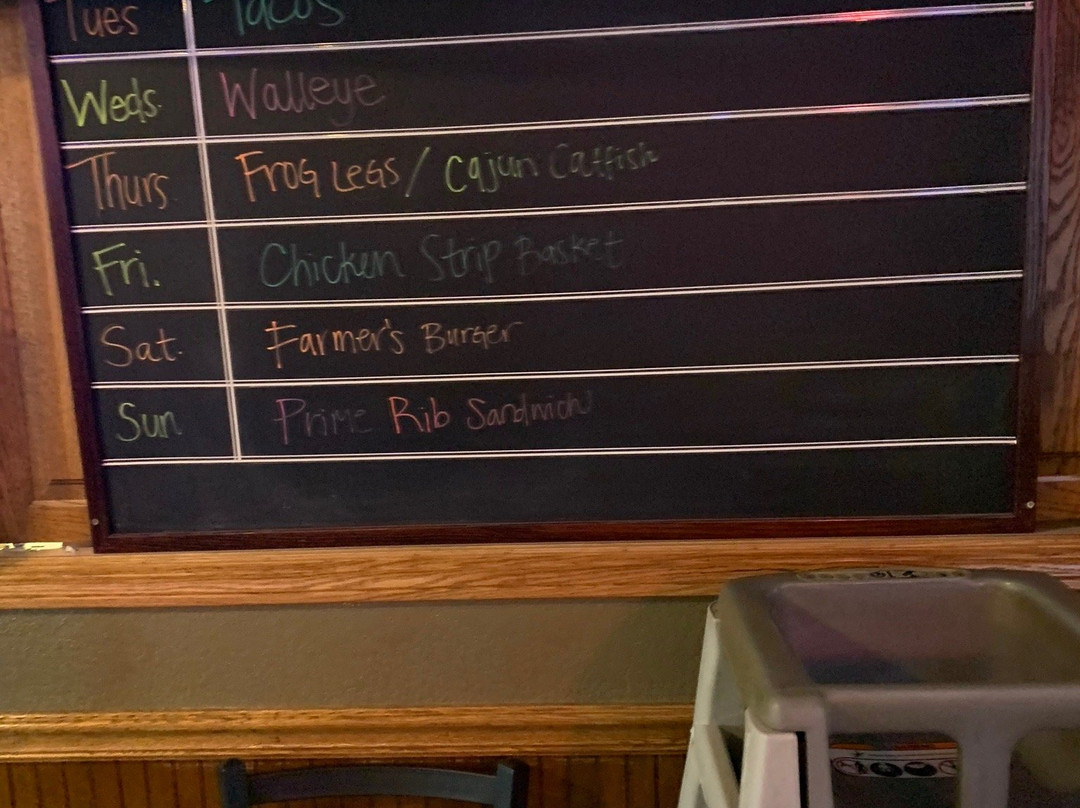 Tues Tacos
Weds. Walleye
Thurs Frog Legs / Cajun Catfish
Fri. Chicken Strip Basket
Sat. Farmer's Burger
Sun. Prime Rib Sandwich